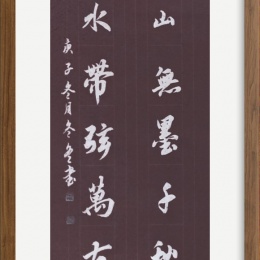 山無墨千秋
水帶弦萬古
庚子冬月冬書